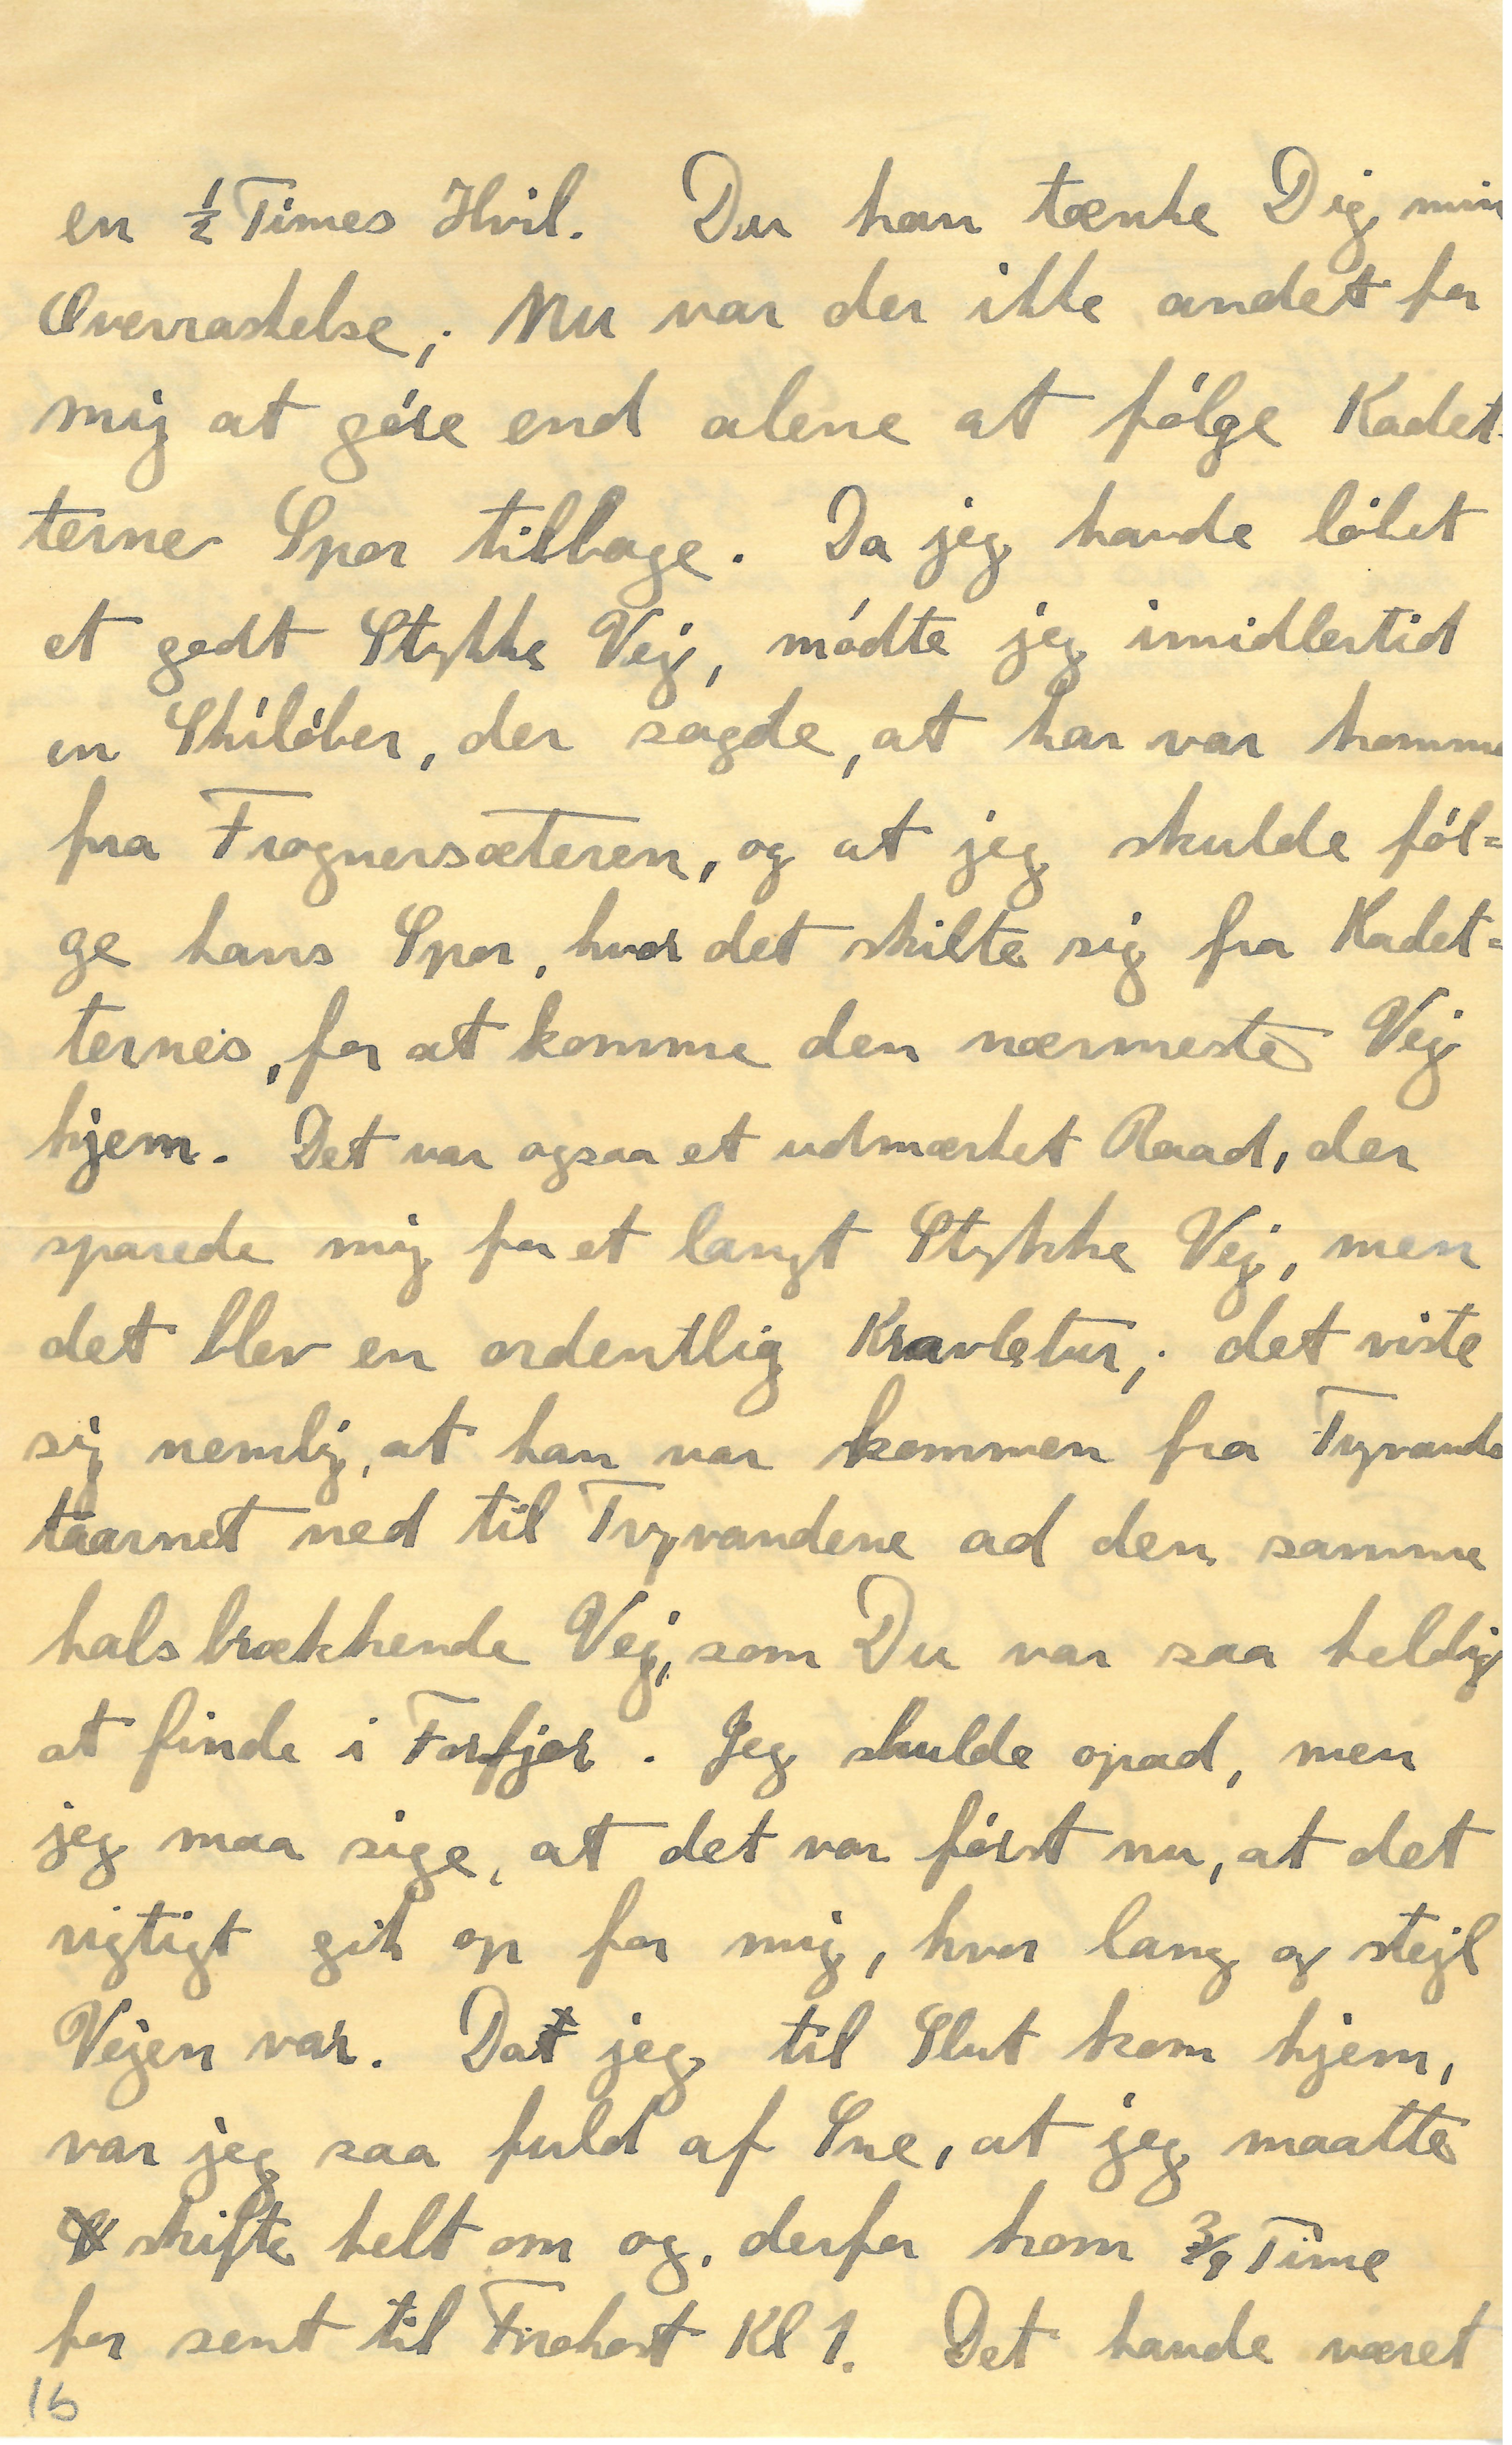 en ½ Times Hvil. Du kan tænke Dig min
Overraskelse; Nu var der ikke andet for
mig at gøre end alene at følge Kadet-
ternes Spor tilbage. Da jeg havde løbet
et godt Stykke Vej, mødte jeg imidlertid
en Skiløber, der sagde, at han var komme
fra Frognersæteren, og at jeg skulde føl=
ge hans Spor, hvor det skilte sig fra Kadet=
ternes, for at komme den nærmeste Vej
hjem. Det var ogsaa et udmærket Raad, der
sparede mig for et langt Stykke Vej, men
det blev en ordentlig Kravletur; det viste
sig nemlig, at han var kommen fra Tryvands
taarnet ned til Tryvandene ad den samme
halsbrækkende Vej, som Du var saa heldig
at finde i Forfjor. Jeg skulde opad, men
jeg maa sige, at det var først nu, at det
rigtigt gik op for mig, hvor lang og stejl
Vejen var. Da jeg til Slut kom hjem,
var jeg saa fuld af Sne, at jeg maatte
skifte helt om og derfor kom ¾ Time
for sent til Frokost Kl 1. Det havde været
16